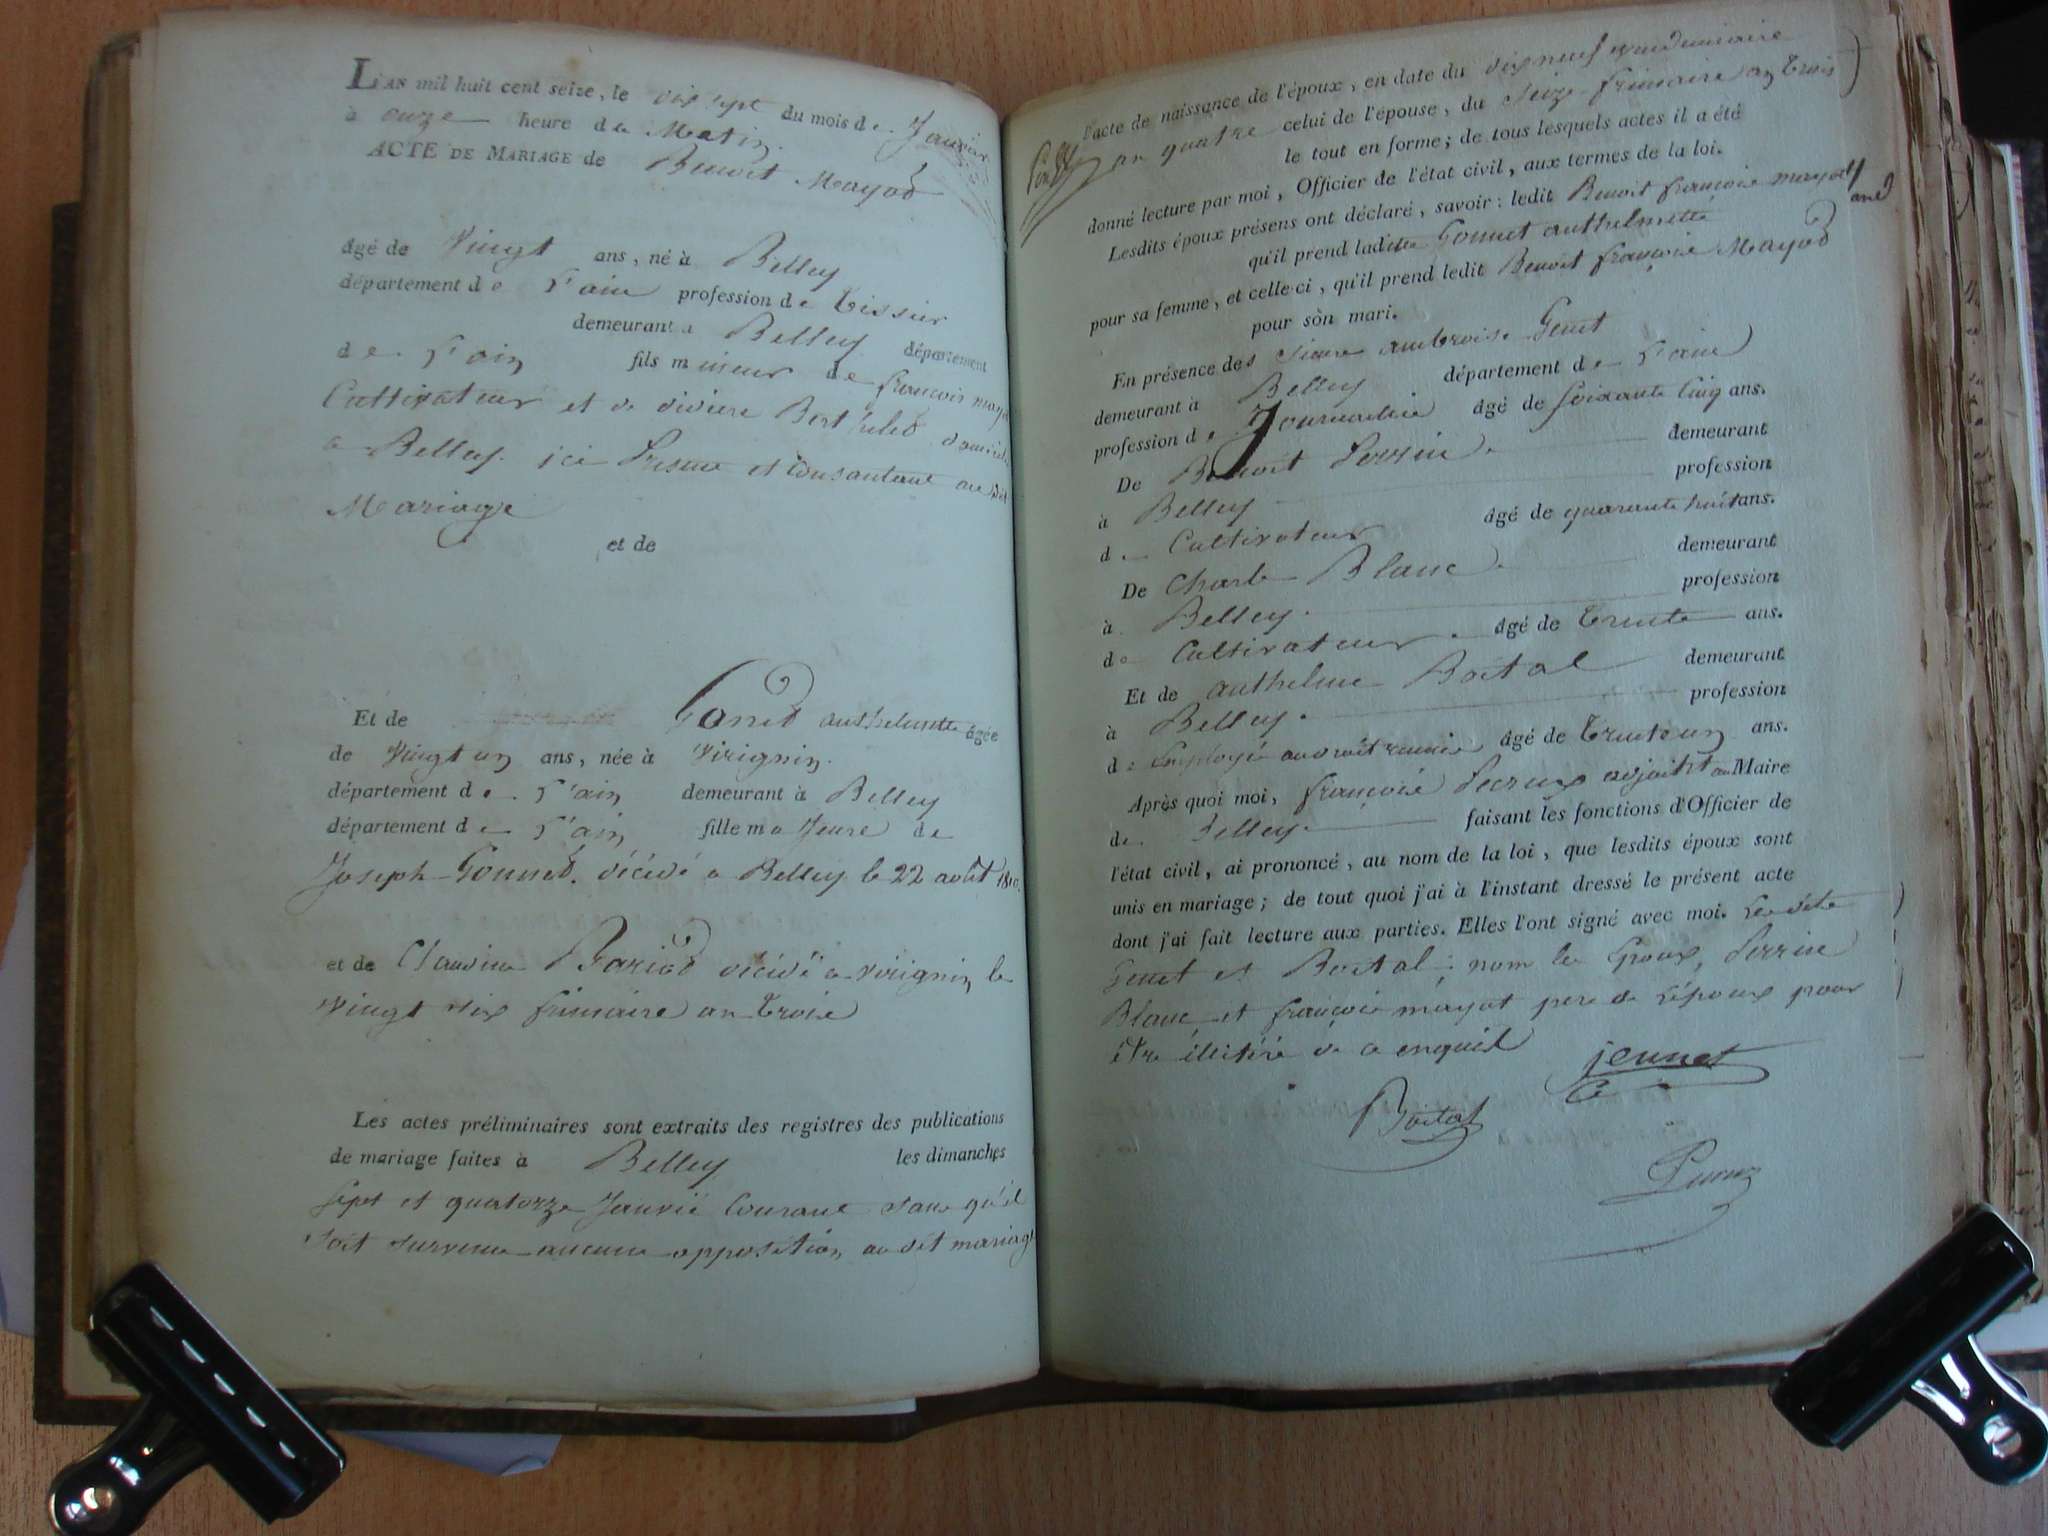 L'AN mil huit cent seize, le dix sept du mois de Janvier
à onze heure de Matin.
ACTE DE MARIAGE de Benoit Mayod
âgé de Vingt ans, né à Belley
département de L'ain profession de tissier
demeurant a Belley département
de L'ain fils mineur de françois mayod
Cultivateur et de
a Belley. ici et au dit
Mariage
et de
Et de Gonnet anthelmette âgée
de Vingt un ans, née à Virignin.
département de L'ain demeurant à Belley
département de L'ain fille majeure de
Joseph Gonnet. décédé a Belley le 22 août
et de Claudine décédé a Virignin le
Vingt six frimaire an trois
Les actes préliminaires sont extraits des registres des publications
de mariage faites à Belley les dimanches
sept et quatorze Janvié Courant sans qu'il
soit survenu aucune opposition au dit mariage
l'acte de naissance de l'époux, en date du dix neuf vendemiaire
an quatre celui de l'épouse, du Seize frimaire an trois
le tout en forme; de tous lesquels actes il a été
donné lecture par moi, Officier de l'état civil, aux termes de la loi.
Lesdits époux présens ont déclaré, savoir: ledit Benoit françois mayod
qu'il prend ladite Gonnet anthelmette
pour sa femme, et celle-ci, qu'il prend ledit Benoit françois Mayod
pour son mari.
En présence des sieurs ambroise Genet
demeurant à Belley département de L'ain
profession de Journalier âgé de soixante Cinq ans.
De Benoit Perrin demeurant
à Belley profession
de Cultivateur âgé de quarante huit ans.
De Charle Blanc demeurant
à Belley. profession
de Cultivateur âgé de trente ans.
Et de anthelme Boital demeurant
à Belley profession
de Employé au droit reunie âgé de trente un ans.
Après quoi moi, françois adjoint au Maire
de Belley faisant les fonctions d'Officier de
l'état civil, ai prononcé, au nom de la loi, que lesdits époux sont
unis en mariage; de tout quoi j'ai à l'instant dressé le présent acte
dont j'ai fait lecture aux parties. Elles l'ont signé avec moi. Lesdits
Genet et Boital; non les Epoux, Perrin
Blanc et françois mayot pere de L'époux pour
être illitéré de ce enquis
jennet
Boital